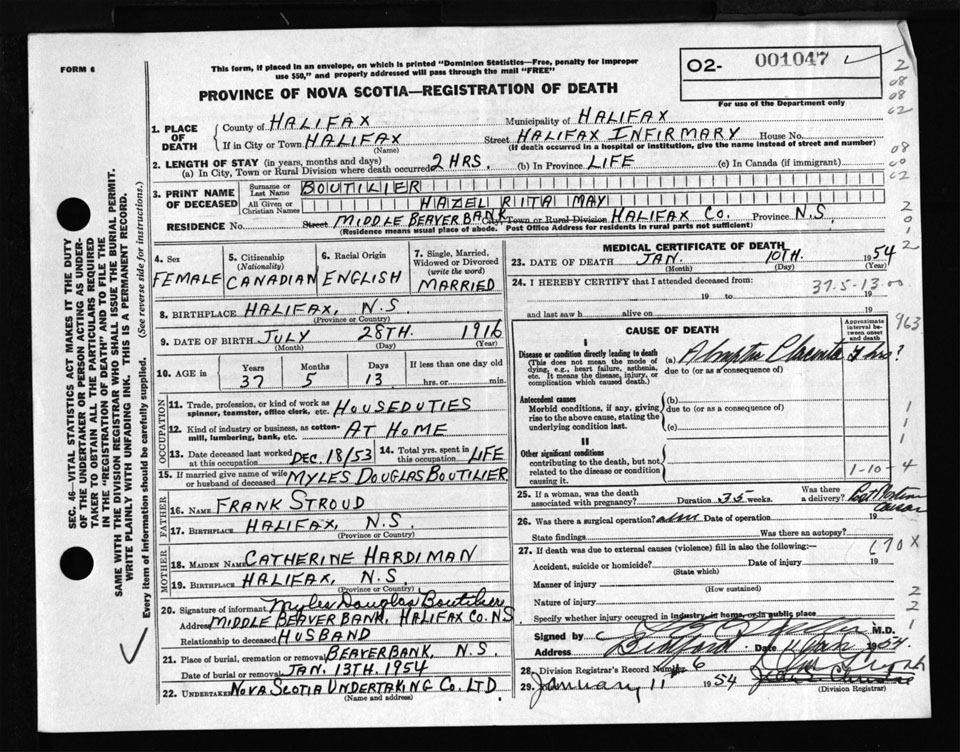 FORM 6
This form, if placed in an envelope, on which is printed "Dominion Statistics—Free, penalty for improper
use $50," and properly addressed will pass through the mail "FREE"
O2- 001047
For use of the Department only
PROVINCE OF NOVA SCOTIA—REGISTRATION OF DEATH
1. PLACE OF DEATH
County of HALIFAX Municipality of HALIFAX
If in City or Town HALIFAX Street HALIFAX INFIRMARY House No.
(Name) (If death occurred in a hospital or institution, give the name instead of street and number)
2. LENGTH OF STAY (in years, months and days)
(a) In City, Town or Rural Division where death occurred 2 HRS. (b) In Province LIFE (c) In Canada (if immigrant)
3. PRINT NAME OF DECEASED
Surname or Last Name BOUTILIER
All Given or Christian Names HAZEL RITA MAY
RESIDENCE No. Street MIDDLE BEAVER BANK City, Town or Rural Division HALIFAX CO. Province N.S.
(Residence means usual place of abode. Post Office Address for residents in rural parts not sufficient)
4. Sex FEMALE
5. Citizenship (Nationality) CANADIAN
6. Racial Origin ENGLISH
7. Single, Married, Widowed or Divorced (write the word) MARRIED
8. BIRTHPLACE HALIFAX, N.S.
(Province or Country)
9. DATE OF BIRTH JULY 28TH. 1916
(Month) (Day) (Year)
10. AGE in Years 37 Months 5 Days 13 If less than one day old hrs. or min.
OCCUPATION
11. Trade, profession, or kind of work as spinner, teamster, office clerk, etc. HOUSEDUTIES
12. Kind of industry or business, as cotton-mill, lumbering, bank, etc. AT HOME
13. Date deceased last worked at this occupation DEC. 18/53
14. Total yrs. spent in this occupation LIFE
15. If married give name of wife or husband of deceased MYLES DOUGLAS BOUTILIER
FATHER
16. NAME FRANK STROUD
17. BIRTHPLACE HALIFAX, N.S.
(Province or Country)
MOTHER
18. MAIDEN NAME CATHERINE HARDIMAN
19. BIRTHPLACE HALIFAX, N.S.
(Province or Country)
20. Signature of informant Myles Douglas Boutilier
Address MIDDLE BEAVER BANK, HALIFAX CO. N.S
Relationship to deceased HUSBAND
21. Place of burial, cremation or removal BEAVERBANK, N.S.
Date of burial or removal JAN. 13TH. 1954
22. UNDERTAKER NOVA SCOTIA UNDERTAKING CO. LTD.
(Name and address)
MEDICAL CERTIFICATE OF DEATH
23. DATE OF DEATH JAN. 10TH. 1954
(Month) (Day) (Year)
24. I HEREBY CERTIFY that I attended deceased from: 37.5-13.00
19 to 19
and last saw h alive on 19
963
CAUSE OF DEATH
Approximate interval between onset and death
I
Disease or condition directly leading to death
(This does not mean the mode of dying, e.g., heart failure, asthenia, etc. It means the disease, injury, or complication which caused death.)
(a) Abruptio Placenta 2 hrs?
due to (or as a consequence of)
Antecedent causes
Morbid conditions, if any, giving rise to the above cause, stating the underlying condition last.
(b)
due to (or as a consequence of)
(c)
II
Other significant conditions
contributing to the death, but not related to the disease or condition causing it.
1-10-4
25. If a woman, was the death associated with pregnancy? Duration 35 weeks. Was there a delivery? Post Mortem
26. Was there a surgical operation? Date of operation 19
State findings Was there an autopsy?
27. If death was due to external causes (violence) fill in also the following:—
670X
Accident, suicide or homicide? Date of injury 19
(State which)
Manner of injury
(How sustained)
Nature of injury
Specify whether injury occurred in industry, in home, or in public place
Signed by M.D.
Address Bedford Date Jan 1954
28. Division Registrar's Record Number 6
29. January 11 1954
(Division Registrar)
SEC. 46—VITAL STATISTICS ACT MAKES IT THE DUTY
OF THE UNDERTAKER OR PERSON ACTING AS UNDER-
TAKER TO OBTAIN ALL THE PARTICULARS REQUIRED
IN THE "REGISTRATION OF DEATH" AND TO FILE THE
SAME WITH THE DIVISION REGISTRAR WHO SHALL ISSUE THE BURIAL PERMIT.
WRITE PLAINLY WITH UNFADING INK. THIS IS A PERMANENT RECORD.
Every item of information should be carefully supplied. (See reverse side for instructions.)